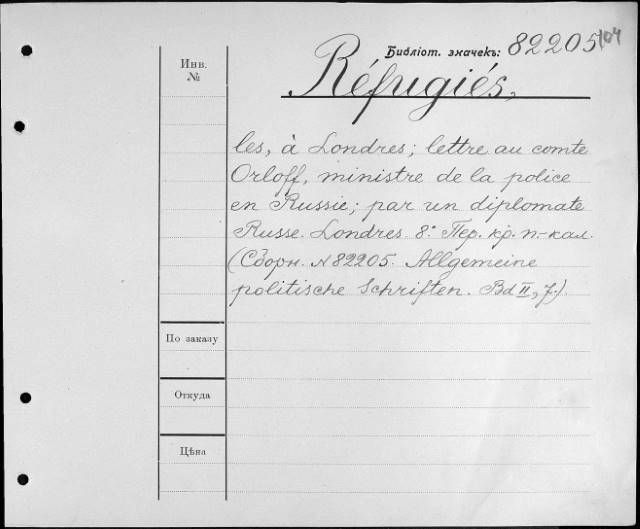 Библіот. значекъ: 82205/104
Инв.
№
Réfugiés,
les, à Londres; lettre au comte
Orloff, ministre de la police
en Russie; par un diplomate
Russe. Londres. 8°. Пер. кр. п.-кал.
(Сборн. N 82205. Allgemeine
politische Schriften. Bd II, 7.).
По заказу
Откуда
Цѣна